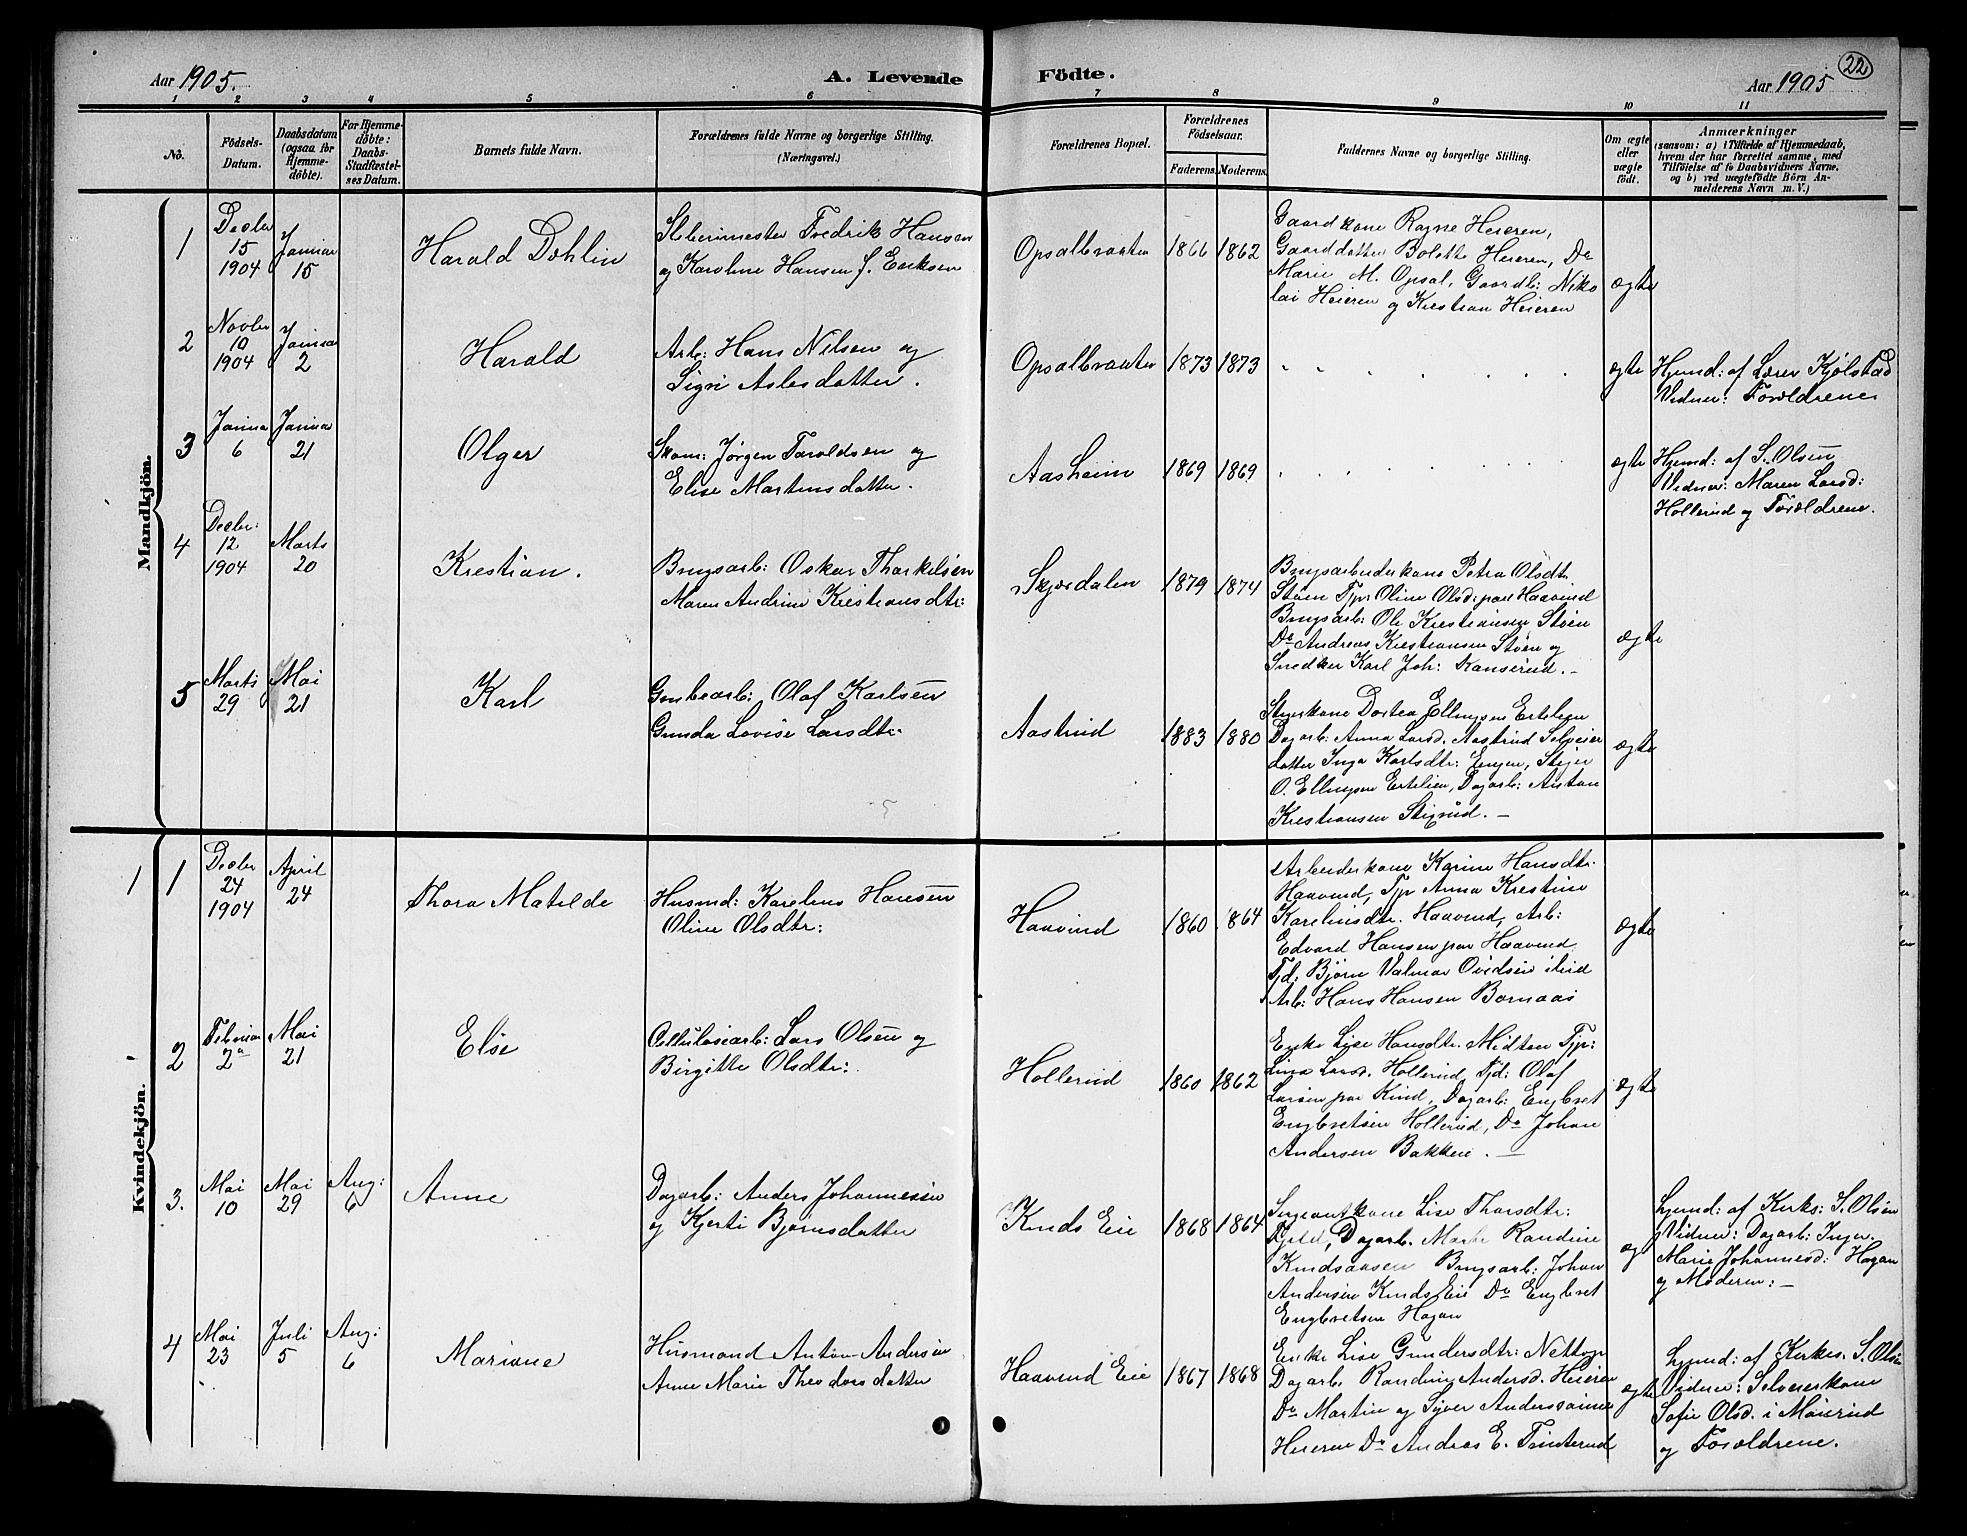 Aar 1905.
A. Levende Födte.
Aar 1905
22
1 2 3 4 5 6 7 8 9 10 11
No.
Födsels-
Datum.
Daabsdatum
(ogsaa for
Hjemme-
döbte).
For Hjemme-
döbte:
Daabs-
Stadfæstel-
ses Datum.
Barnets fulde Navn.
Forældrenes fulde Navne og borgerlige Stilling.
(Næringsvei.)
Forældrenes Bopæl.
Forældrenes
Födselsaar.
Faderens. Moderens.
Faddernes Navne og borgerlige Stilling.
Om ægte
eller
uægte
födt.
Anmærkninger
(saasom: a) i Tilfælde af Hjemmedaab,
hvem der har forrettet samme, med
Tilföielse af to Daabsvidners Navne,
og b) ved uægtefödte Börn An-
melderens Navn m. V.)
Mandkjön.
1
Decbr
15
1904
Januar
15
Harald Dohlin
Sliberimester Fredrik Hansen
og Karoline Hansen f. Eriksen
Opsalbraaten
1866 1862
Gaardkone Ragne Heieren,
Gaarddatter Bolette Heieren, Do
Marie M. Opsal, Gaardb: Niko
lai Heieren og Kristian Heieren
ægte
2
Novbr
10
1904
Januar
2
Harald
Arb: Hans Nilsen og
Sigri Aslesdatter.
Opsalbraaten
1873 1873
ægte
Hjemd: af Lærer Kjölstad
Vidner: Forældrene
3
Januar
6
Januar
21
Olger
Skom: Jørgen Taroldsen og
Elise Martinsdatter.
Aasheim
1869 1869
ægte
Hjemd: af S. Olsen
Vidner: Maren Larsd:
Hollerud og Forældrene.
4
Decbr:
12
1904
Marts
20
Kristian.
Brugsarb: Oskar Thorkilsen
Maren Andrine Kristiansdtr:
Skjærdalen
1879 1874
Brugsarbeiderkone Petra Olsdtr.
Støen Tjp: Oline Olsd: paa Haavind
Brugsarb: Ole Kristiansen Støen
Do Andreas Kristiansen Støen og
Snedker Karl Joh: Hanserud.
ægte
5
Marts
29
Mai
21
Karl
Grubearb: Olaf Karlsen
Gunda Lovise Larsdtr.
Aastrud
1883 1880
Styrkone Dortea Ellingsen Ertelien
Dagarb: Anna Larsd. Aastrud Selveier
datter Inga Karlsdtr: Engen, Stiger
O. Ellingsen Ertelien, Dagarb: Anton
Kristiansen Stigrud.
ægte
Kvindekjön.
1 1
Decbr
24
1904
April
24
Thora Matilde
Husmd: Karelius Hansen
Oline Olsdtr:
Haavind
1860 1864
Arbeiderkone Karine Hansdtr.
Haavind, Tjp Anna Kristine
Kareliusdtr. Haavind, Arb:
Edvard Hansen paa Haavind
Tjd: Bjørn Valmar Ovidsen
Arb: Hans Hansen Bornaas
ægte
2
Februar
2
Mai
21
Else
Cellulosearb: Lars Olsen og
Birgitte Olsdtr:
Hollerud
1860 1862
Enke Lise Hansdtr. Midten Tjp:
Lina Larsd. Hollerud, Tjd: Olaf
Larsen paa Knud, Dagarb: Engbret
Engbretsen Hollerud, Do Johan
Andersen Bakken.
ægte
3.
Mai
10
Mai
29
Aug:
6
Anne
Dagarb: Anders Johannesen
og Kjersti Bjørnsdatter
Knuds Eie
1868 1864
Sergeantkone Lise Thorsdtr:
Fjeld, Dagarb. Marte Randine
Brugsarb: Johan
Andersen Knuds Eie Do Engbret
Engbretsen Hagan
æg
Hjemd: af Kirks: S. Olsen
Vidner: Dagarb: Inger
Marie Johannesd: Hagan
og Moderen:
4
Mai
23
Juli
5
Aug:
6
Mariane
Husmand Anton Andersen
Anne Marie Theodorsdatter
Haavind Eie
1867 1868
Enke Lise Gundersdtr:
Dagarb. Randine Andersd. Heieren
Do Martin og Syver Anderssønner
Heieren Do Andreas E. Tinterud
ægte
Hjemd: af Kirkes. S. Olsen
Vidner: Selveierkone
Sofie Olsd. i Moierud
og Forældrene.